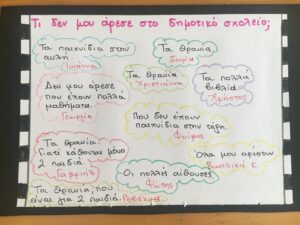 Τι δεν μου άρεσε στο δημοτικό σχολείο;
Τα παιχνίδια στην
αυλή
Ιωάννα
Τα θρανία
Σοφία
Δεν μου άρεσε
που έχουν πολλά
μαθήματα.
Γεωργία
Τα θρανία
Χριστιάννα
Τα πολλά
βιβλία
Χρήστος
Που δεν έχουν
παιχνίδια στην τάξη.
Φοίβος
Τα θρανία
Γιατί κάθονται μόνο
2 παιδιά.
Γαβριήλ
Όλα μου άρεσαν
Βασιλική Κ
Οι πολλές αίθουσες
Φώτης
Τα θρανία, που
είναι για 2 παιδιά. Ρεβέκκα